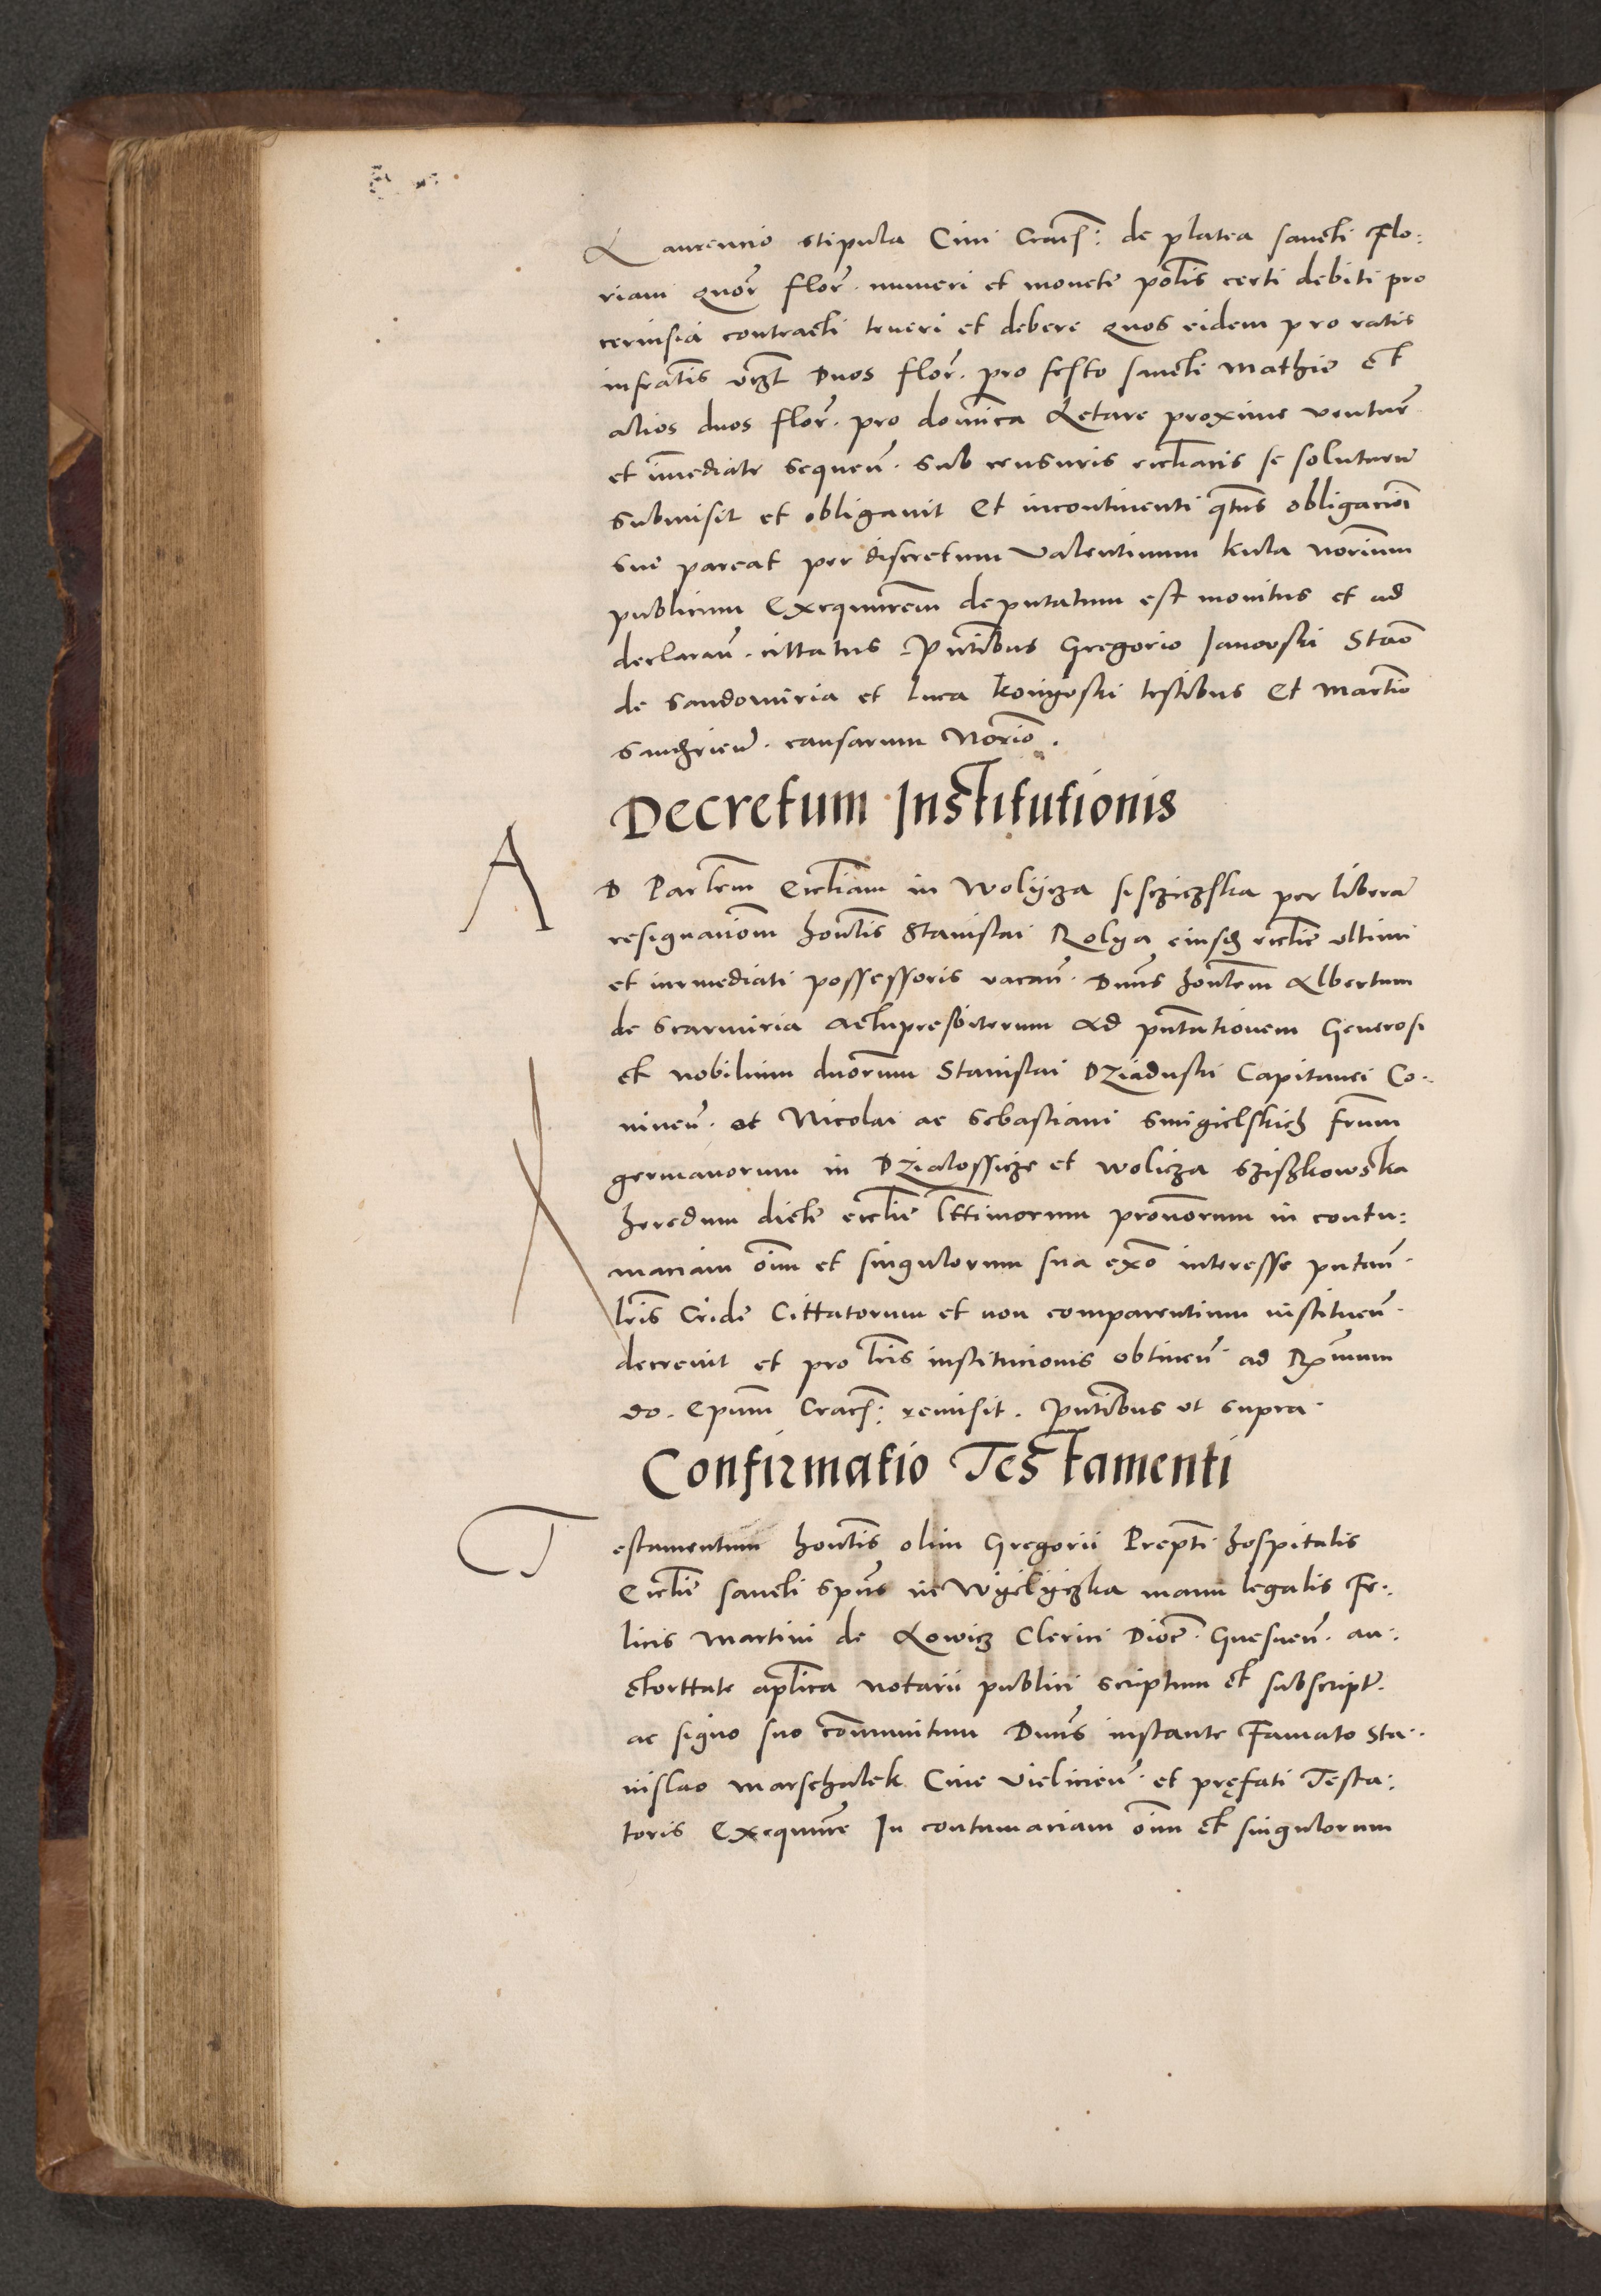 Laurencio stipula Civi Cracs̄: de platea sancti Flo:
riani quor̄ flor̄. numeri et monete pol̄is certi debiti pro
cervisia contracti teneri et debere quos eidem pro ratis
infrac̄tis vꝫt Duos flor̄. pro festo sancti Mathie Et
alios duos flor̄. pro domīca Letare proxime ventur̄
et īmediate sequeñ. sub censuris ecl̄iacis se soluturū
submisit et obligavit Et incontinenti q̄tus obligacioī
sue pareat per discretum Valentinum kula nōrium
publicum Exequutorēm deputatum est monitus et ad
declarañ. cittatus. Pn̄tibus Gregorio Janovski Stāo
de Sandomiria et Luca testibus Et Martīo
causarum Nōrio.
Decretum Institutionis
AD Par̄lem Eccl̄iam in Wolycza per liberā
resignatiōem hon̄lis Stanislai Rolya eiusdē ecl̄ie ultimi
et immediati possessoris vacañ. Dn̄us hon̄lem Albertum
de Scarmiria Archipresbiterum Ad pn̄tationem Generosi
et nobilium duōrum Stanislai Dziaduski Capitanei Co:
nineñ. et Nicolai ac Sebastiani Smigielskich frūm
germanorum in Dzialossicze et Wolicza Sziszkowska
heredum dicte ecl̄ie l̄ttimorum pr̄onorum in contu:
maciam oīm et singulorum sua exō interesse putañ.
l̄ris Cride Cittatorum et non comparentium institueñ.
decrevit et pro l̄ris institucionis obtineñ. ad Rx̄mum
do. Epūm Cracs̄: remisit. Pn̄tibus ut supra.
Confirmatio Testamenti
Testamentum hon̄lis olim Gregorii Prepti hospitalis
Eccl̄ie sancti Sp̄us in Wyelyczka manu legalis Fe:
licis Martini de Lowicz Clerici Dioc̄. Gnesneñ. au:
ctorittate ap̄lica notarii publici scriptum et subscript̄.
ac signo suo cōmunitum Dn̄us instante Famato Sta:
nislao Marschalek Cive Vielicieñ. et pręfati Testa:
toris Exequutore In contumaciam oīm Et singulorum